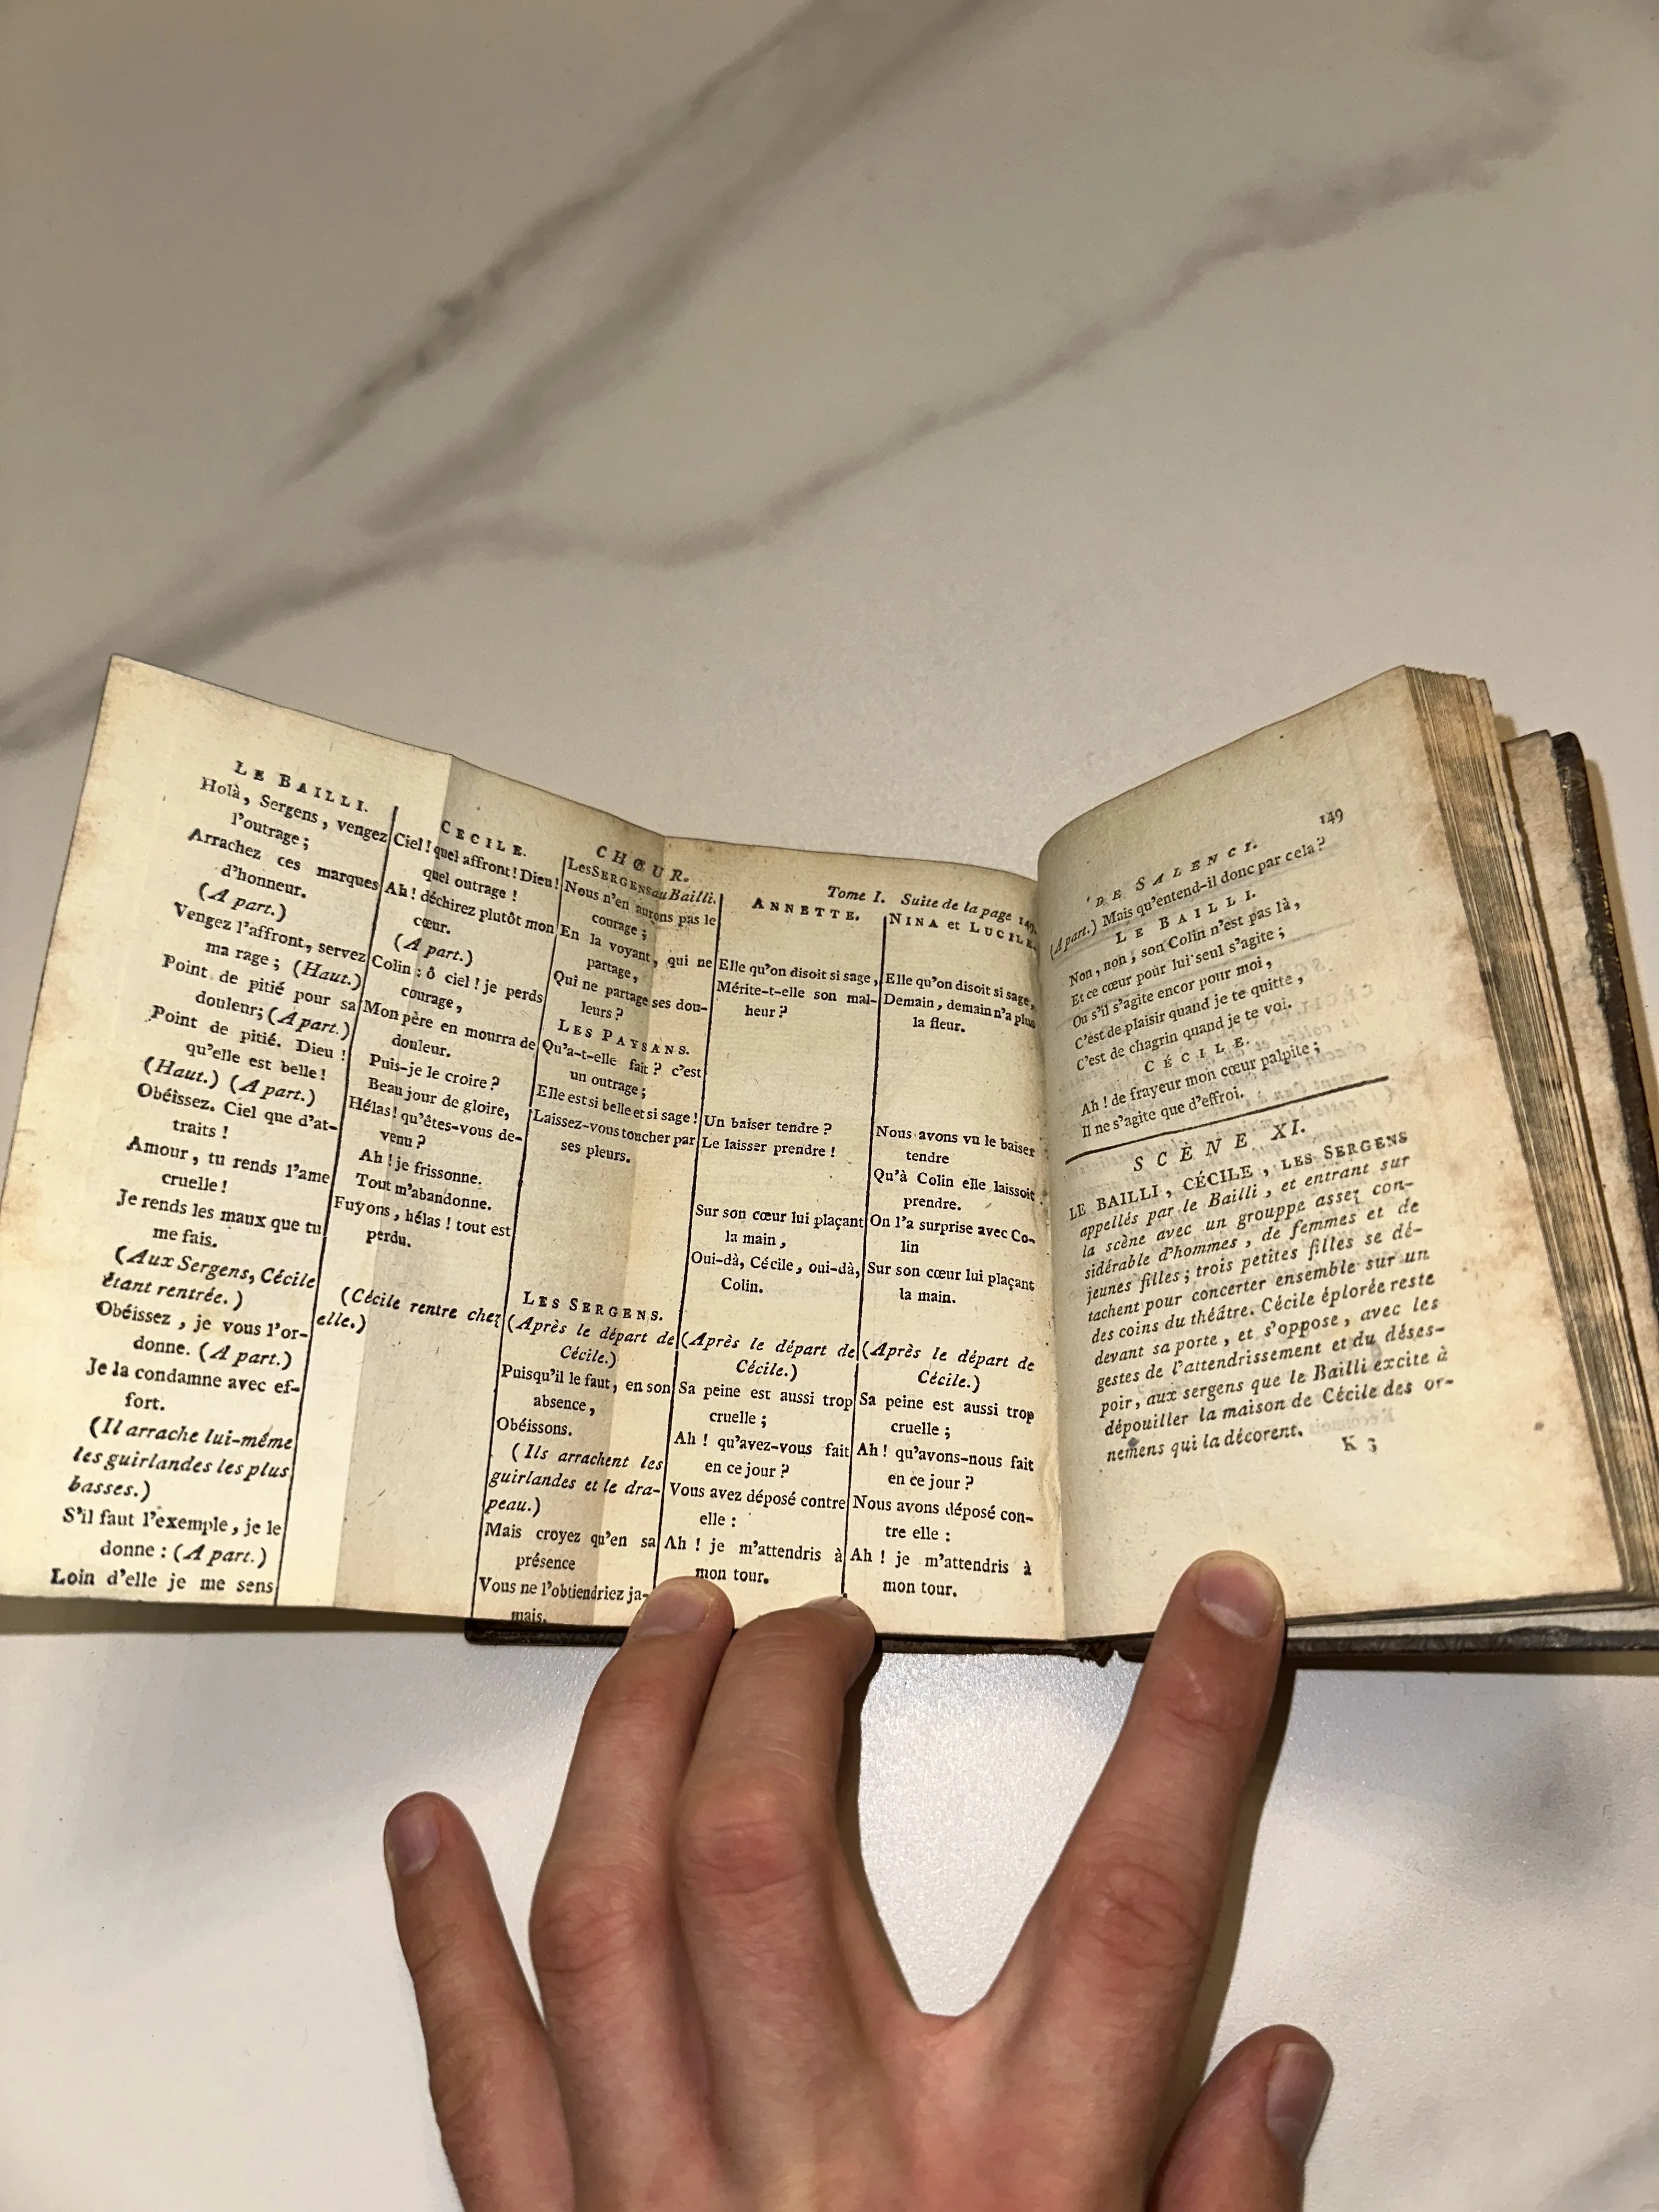 LE BAILLI.
Holà, Sergens, vengez
l'outrage;
Arrachez ces marques
d'honneur.
(A part.)
Vengez l'affront, servez
ma rage; (Haut.)
Point de pitié pour sa
douleur; (A part.)
Point de pitié. Dieu !
qu'elle est belle !
(Haut.) (A part.)
Obéissez. Ciel que d'at-
traits !
Amour, tu rends l'ame
cruelle !
Je rends les maux que tu
me fais.
(Aux Sergens, Cécile
étant rentrée.)
Obéissez, je vous l'or-
donne. (A part.)
Je la condamne avec ef-
fort.
(Il arrache lui-même
les guirlandes les plus
basses.)
S'il faut l'exemple, je le
donne : (A part.)
Loin d'elle je me sens
CECILE.
Ciel ! quel affront ! Dieu !
quel outrage !
Ah ! déchirez plutôt mon
cœur.
(A part.)
Colin : ô ciel ! je perds
courage,
Mon père en mourra de
douleur.
Puis-je le croire ?
Beau jour de gloire,
Hélas ! qu'êtes-vous de-
venu ?
Ah ! je frissonne.
Tout m'abandonne.
Fuyons, hélas ! tout est
perdu.
(Cécile rentre chez
elle.)
CHŒUR.
Les SERGENS au Bailli.
Nous n'en aurons pas le
courage ;
En la voyant, qui ne
partage,
Qui ne partage ses dou-
leurs ?
LES PAYSANS.
Qu'a-t-elle fait ? c'est
un outrage ;
Elle est si belle et si sage !
Laissez-vous toucher par
ses pleurs.
LES SERGENS.
(Après le départ de
Cécile.)
Puisqu'il le faut, en son
absence,
Obéissons.
(Ils arrachent les
guirlandes et le dra-
peau.)
Mais croyez qu'en sa
présence
Vous ne l'obtiendriez ja-
mais.
Tome I. Suite de la page 149.
ANNETTE.
Elle qu'on disoit si sage,
Mérite-t-elle son mal-
heur ?
Un baiser tendre ?
Le laisser prendre !
Sur son cœur lui plaçant
la main,
Oui-dà, Cécile, oui-dà,
Colin.
(Après le départ de
Cécile.)
Sa peine est aussi trop
cruelle ;
Ah ! qu'avez-vous fait
en ce jour ?
Vous avez déposé contre
elle :
Ah ! je m'attendris à
mon tour.
NINA et LUCILE.
Elle qu'on disoit si sage,
Demain, demain n'a plus
la fleur.
Nous avons vu le baiser
tendre
Qu'à Colin elle laissoit
prendre.
On l'a surprise avec Co-
lin
Sur son cœur lui plaçant
la main.
(Après le départ de
Cécile.)
Sa peine est aussi trop
cruelle ;
Ah ! qu'avons-nous fait
en ce jour ?
Nous avons déposé con-
tre elle :
Ah ! je m'attendris à
mon tour.
DE SALENCI. 149
(A part.) Mais qu'entend-il donc par cela ?
LE BAILLI.
Non, non, son Colin n'est pas là,
Et ce cœur pour lui seul s'agite ;
Ou s'il s'agite encor pour moi,
C'est de plaisir quand je te quitte,
C'est de chagrin quand je te voi.
CÉCILE.
Ah ! de frayeur mon cœur palpite ;
Il ne s'agite que d'effroi.
SCÈNE XI.
LE BAILLI, CÉCILE, LES SERGENS
appellés par le Bailli, et entrant sur
la scène avec un grouppe assez con-
sidérable d'hommes, de femmes et de
jeunes filles ; trois petites filles se dé-
tachent pour concerter ensemble sur un
des coins du théâtre. Cécile éplorée reste
devant sa porte, et s'oppose, avec les
gestes de l'attendrissement et du déses-
poir, aux sergens que le Bailli excite à
dépouiller la maison de Cécile des or-
nemens qui la décorent.
K 3